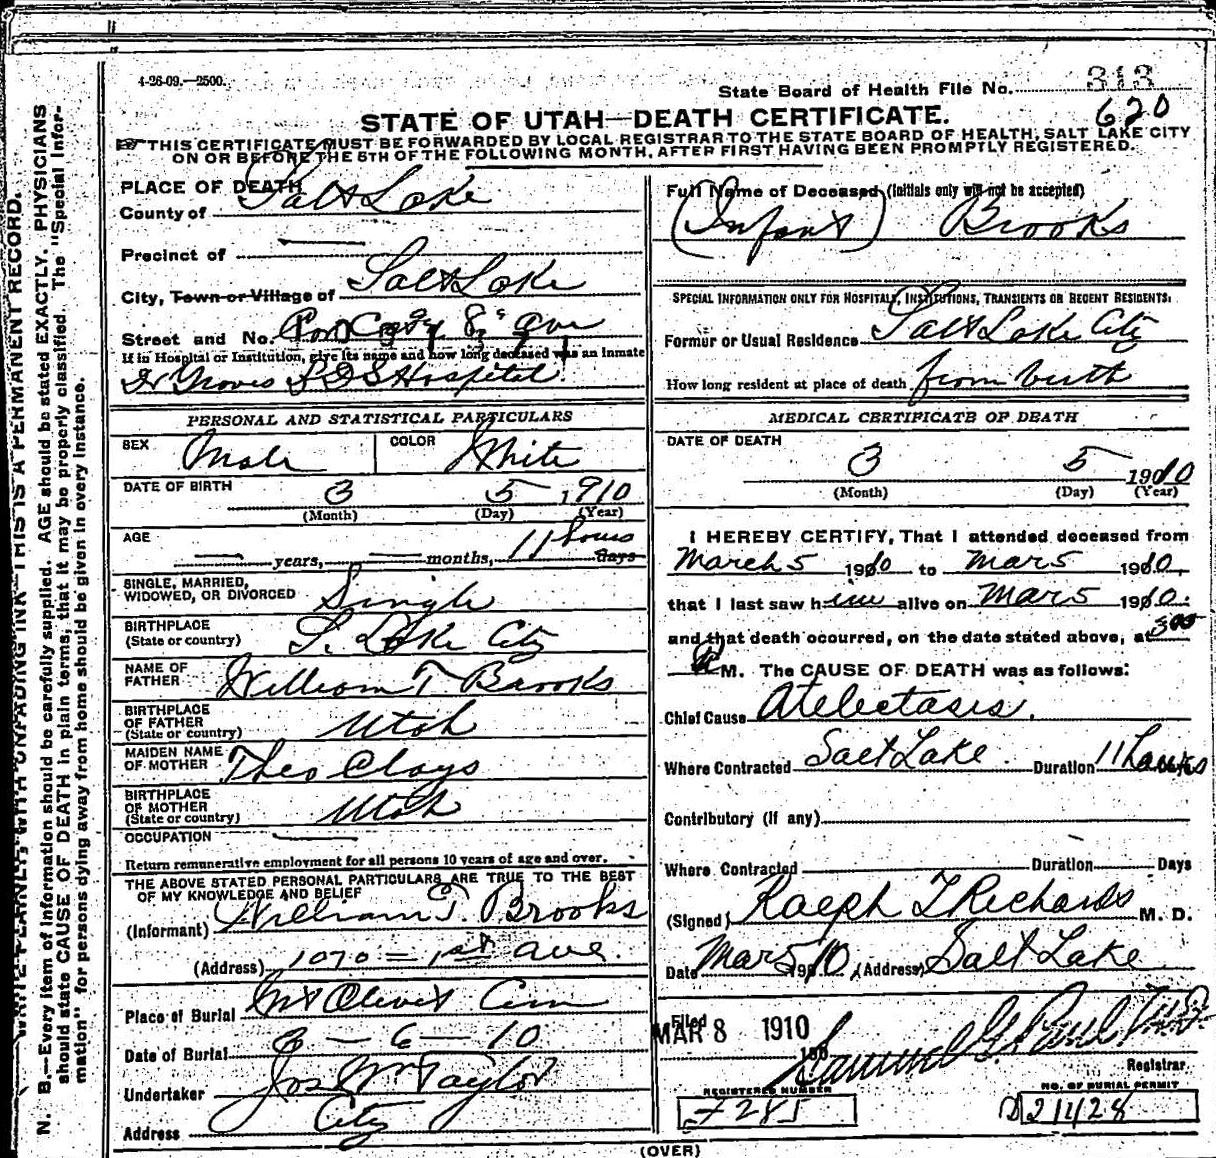 4-26-09.—2500.
State Board of Health File No. 313
620
STATE OF UTAH—DEATH CERTIFICATE.
THIS CERTIFICATE MUST BE FORWARDED BY LOCAL REGISTRAR TO THE STATE BOARD OF HEALTH, SALT LAKE CITY
ON OR BEFORE THE 5TH OF THE FOLLOWING MONTH, AFTER FIRST HAVING BEEN PROMPTLY REGISTERED.
PLACE OF DEATH
County of Salt Lake
Precinct of
City, Town or Village of Salt Lake
Street and No. Cor C St & 8th Ave
If in Hospital or Institution, give its name and how long deceased was an inmate
Dr Groves LDS Hospital
Full Name of Deceased (Initials only will not be accepted)
(Infant) Brooks
SPECIAL INFORMATION ONLY FOR HOSPITALS, INSTITUTIONS, TRANSIENTS OR RECENT RESIDENTS.
Former or Usual Residence Salt Lake City
How long resident at place of death from birth
PERSONAL AND STATISTICAL PARTICULARS
SEX Male COLOR White
DATE OF BIRTH 3 5 1910
(Month) (Day) (Year)
AGE years, months, 11 hours days
SINGLE, MARRIED,
WIDOWED, OR DIVORCED Single
BIRTHPLACE
(State or country) S. Lake City
NAME OF
FATHER William T Brooks
BIRTHPLACE
OF FATHER
(State or country) Utah
MAIDEN NAME
OF MOTHER Theo Clays
BIRTHPLACE
OF MOTHER
(State or country) Utah
OCCUPATION
Return remunerative employment for all persons 10 years of age and over.
THE ABOVE STATED PERSONAL PARTICULARS ARE TRUE TO THE BEST
OF MY KNOWLEDGE AND BELIEF
(Informant) William T. Brooks
(Address) 1070 - 1st ave.
Place of Burial Mt Olivet Cem
Date of Burial 3 - 6 - 10
Undertaker Jos Wm Taylor
Address City
MEDICAL CERTIFICATE OF DEATH
DATE OF DEATH
3 5 1910
(Month) (Day) (Year)
I HEREBY CERTIFY, That I attended deceased from
March 5 1910 to Mar 5 1910,
that I last saw him alive on Mar 5 1910.
and that death occurred, on the date stated above, at 3 00
M. The CAUSE OF DEATH was as follows:
Chief Cause Atelectasis.
Where Contracted Salt Lake. Duration 11 hours
Contributory (if any)
Where Contracted Duration Days
(Signed) Ralph T Richards M. D.
Date Mar 5 1910, (Address) Salt Lake
Filed MAR 8 1910 190
Samuel G. Paul M.D.
Registrar
REGISTERED NUMBER
7285
NO. OF BURIAL PERMIT
D 21428
(OVER)
WRITE PLAINLY, WITH UNFADING INK—THIS IS A PERMANENT RECORD.
N. B.—Every item of information should be carefully supplied. AGE should be stated EXACTLY. PHYSICIANS
should state CAUSE OF DEATH in plain terms, that it may be properly classified. The "Special Infor-
mation" for persons dying away from home should be given in every instance.